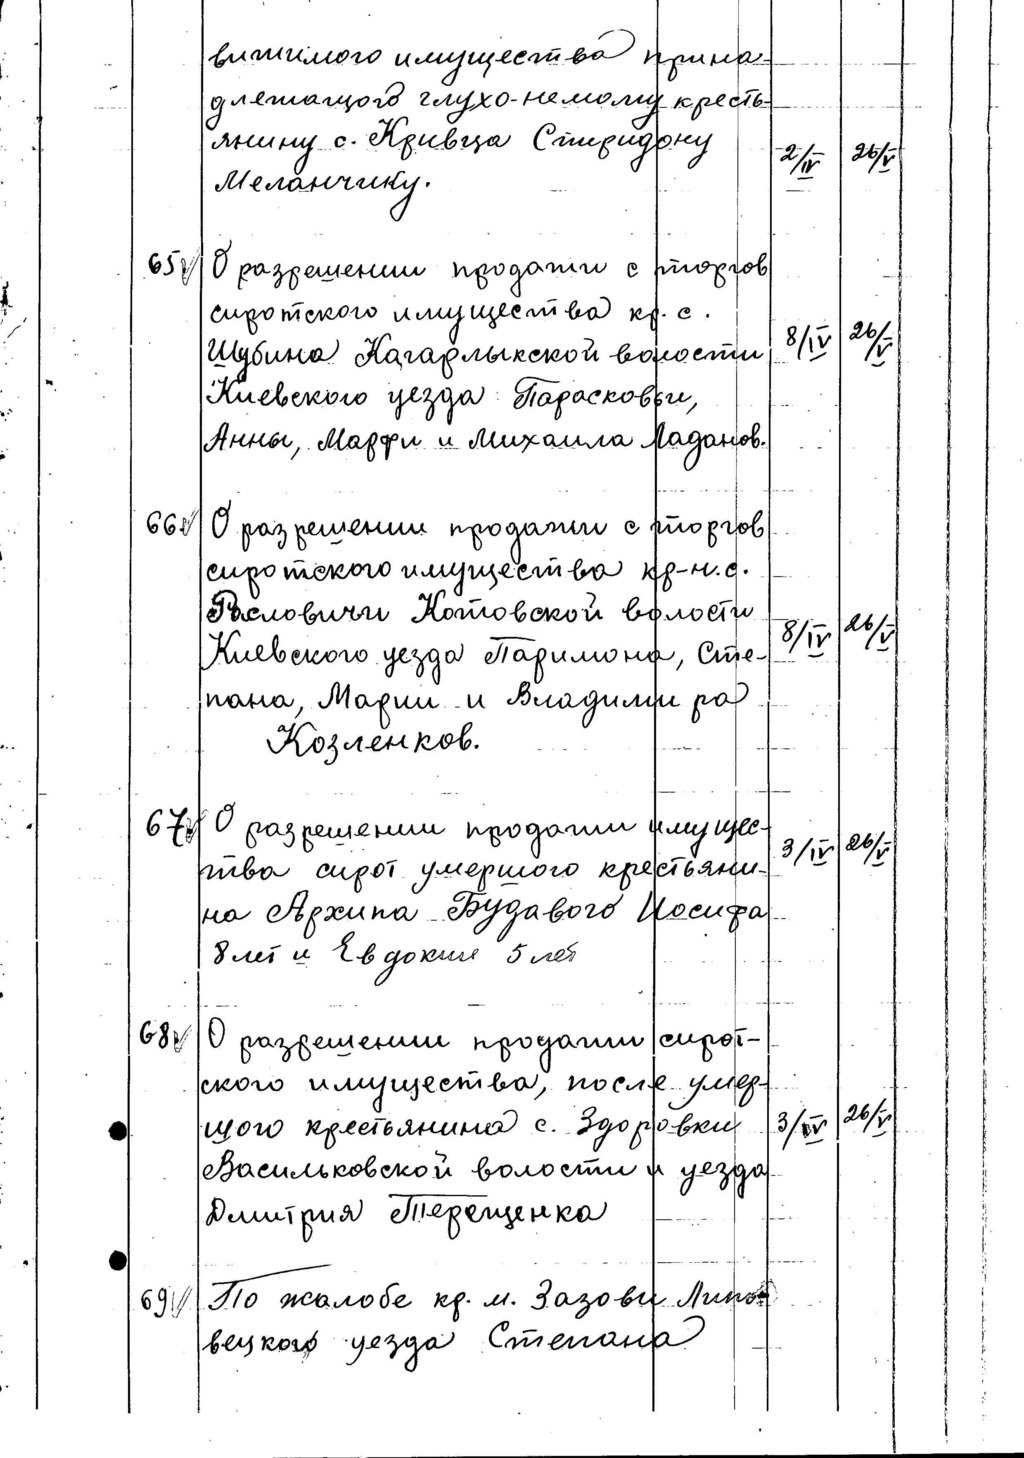 вижимого имущества прина-
длежащого глухо-немому кресть-
янину с. Кривца Спиридону
Меланчику. 2/IV 26/V
65 О разрешении продажи с торгов
сиротского имущества кр. с.
Шубина Кагарлыкской волости 8/IV 26/V
Киевского уезда Парасковьи,
Анны, Марфы и Михаила Ладанов.
66 О разрешении продажи с торгов
сиротского имущества кр-н. с.
Рословичи Хотовской волости 8/IV 26/V
Киевского уезда Паримона, Сте-
пана, Марии и Владимира
Козленков.
67 О разрешении продажи имущес-
тва сирот умершого крестьяни- 3/IV 26/V
на Архипа Будавого Иосифа
8 лет и Евдокии 5 лет
68 О разрешении продажи сирот-
ского имущества, после умер-
шого крестьянина с. Здоровки 3/IV 26/V
Васильковской волости и уезда
Дмитрия Терещенка
69 По жалобе кр. м. Зазовы Липо-
вецкого уезда Степана